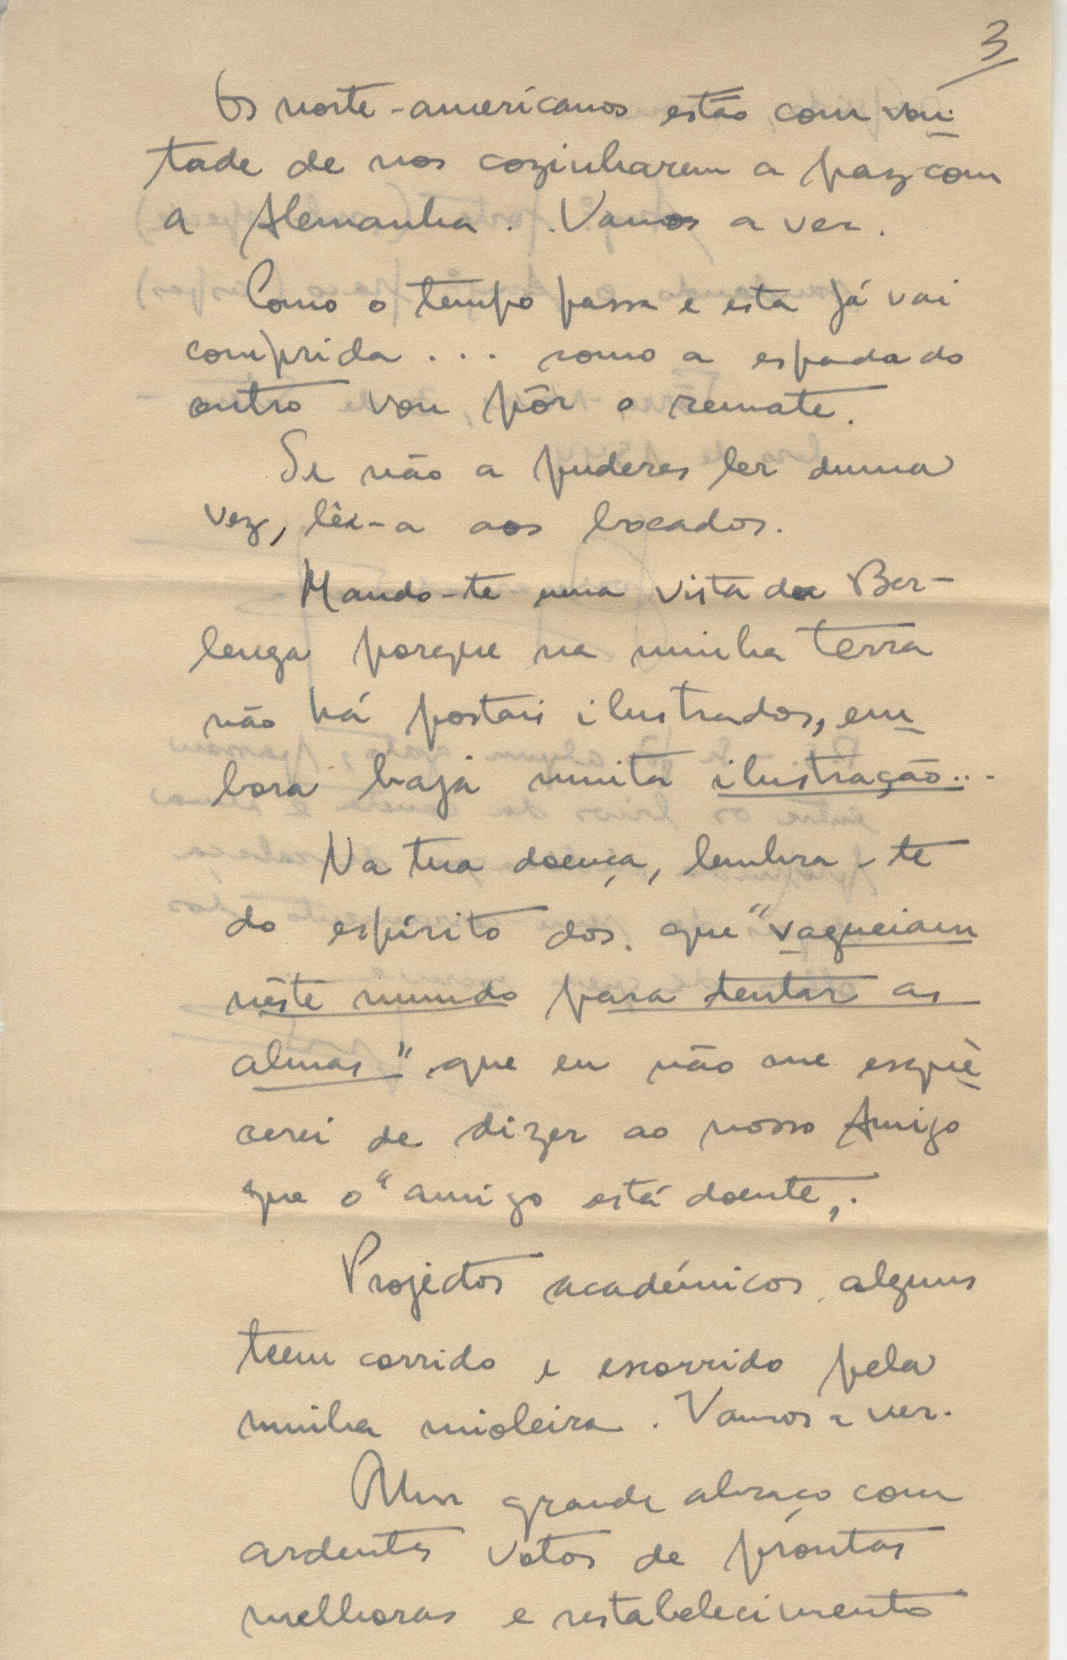 3
Os norte-americanos estão com von-
tade de nos cozinharem a paz com
a Alemanha. Vamos a ver.
Como o tempo passa e esta já vai
comprida ... como a espada do
outro vou pôr o remate.
Se não a puderes ler duma
vez, lêr-a aos bocados.
Mando-te uma vista da Ber-
lenga porque na minha terra
não há postais ilustrados, em-
bora haja muita ilustração...
Na tua doença, lembra-te
do espírito dos que "vagueiam
nêste mundo para tentar as
almas" que eu não me esquè
cerei de dizer ao nosso Amigo
que o "amigo está doente".
Projectos académicos alguns
teem corrido e escorrido pela
minha mioleira. Vamos a ver.
Um grande abraço com
ardentes votos de prontas
melhoras e restabelecimento